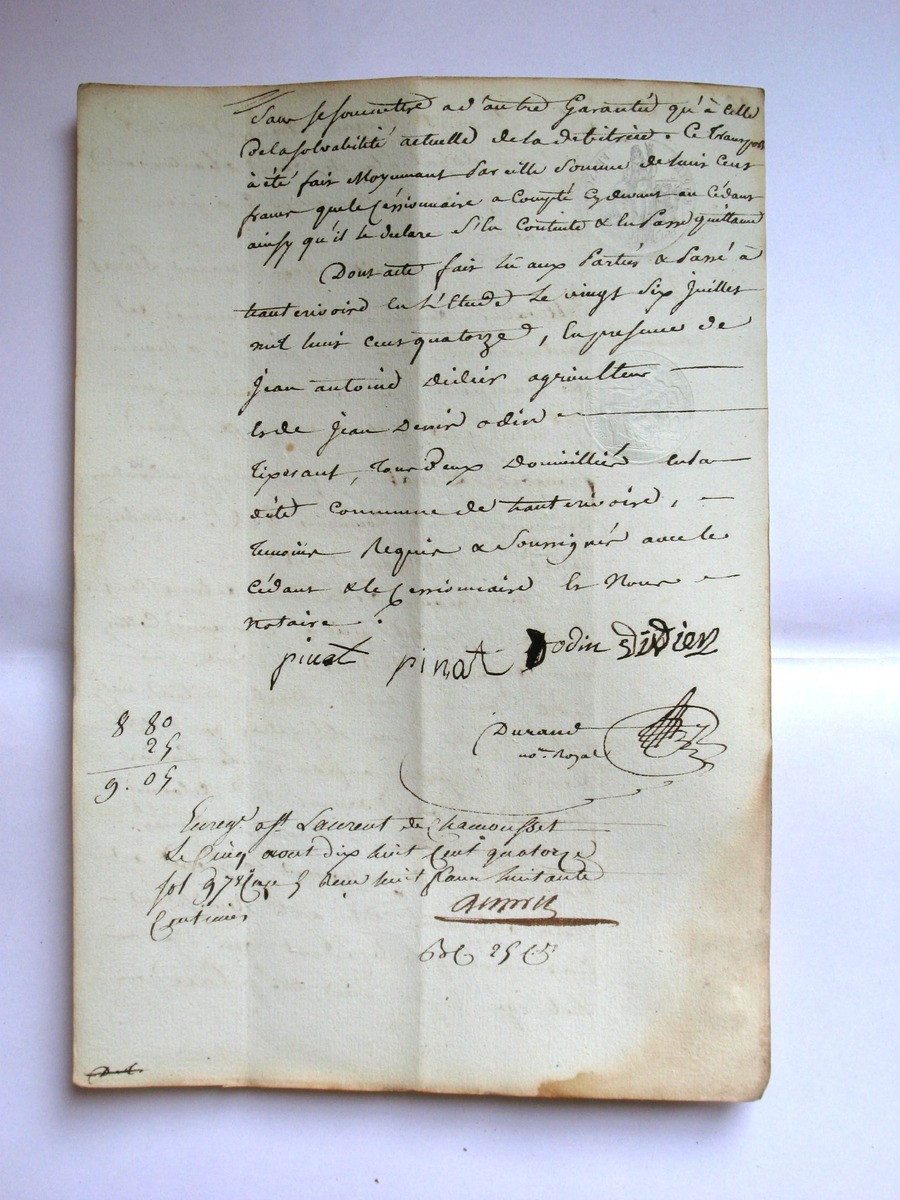 Sans se soumettre a d'autre Garantie qu'à celle
De la solvabilité actuelle de la debitrice. Ce Transport
à été fait Moyennant Pareille Somme de huit cent
francs que le Cessionnaire a Compté cy devant au Cédant
ainsy qu'il le declare s'en Contente & en Passe quittance
Dont acte fait lû aux Parties & Passé à
hauterivoire en l'Etude le vingt Six Juillet
mil huit cent quatorze, en presence de
Jean antoine Didier agriculteur
et de Jean Denis odin
Tixerant, Tous Deux Domicilliés en la
dite Commune de hauterivoire,
Temoins Requis & Soussignés avec le
Cédant & le Cessionnaire Et Nous
notaire.
pinat pinat odin Didier
8 80
25
9. 05
Durand
no.re Royal
Enregt. a St. Laurent de Chamousset
Le Cinq aout dix huit Cent quatorze
fol 97 Case 5 Recu huit francs huitante
Centimes
25 C.